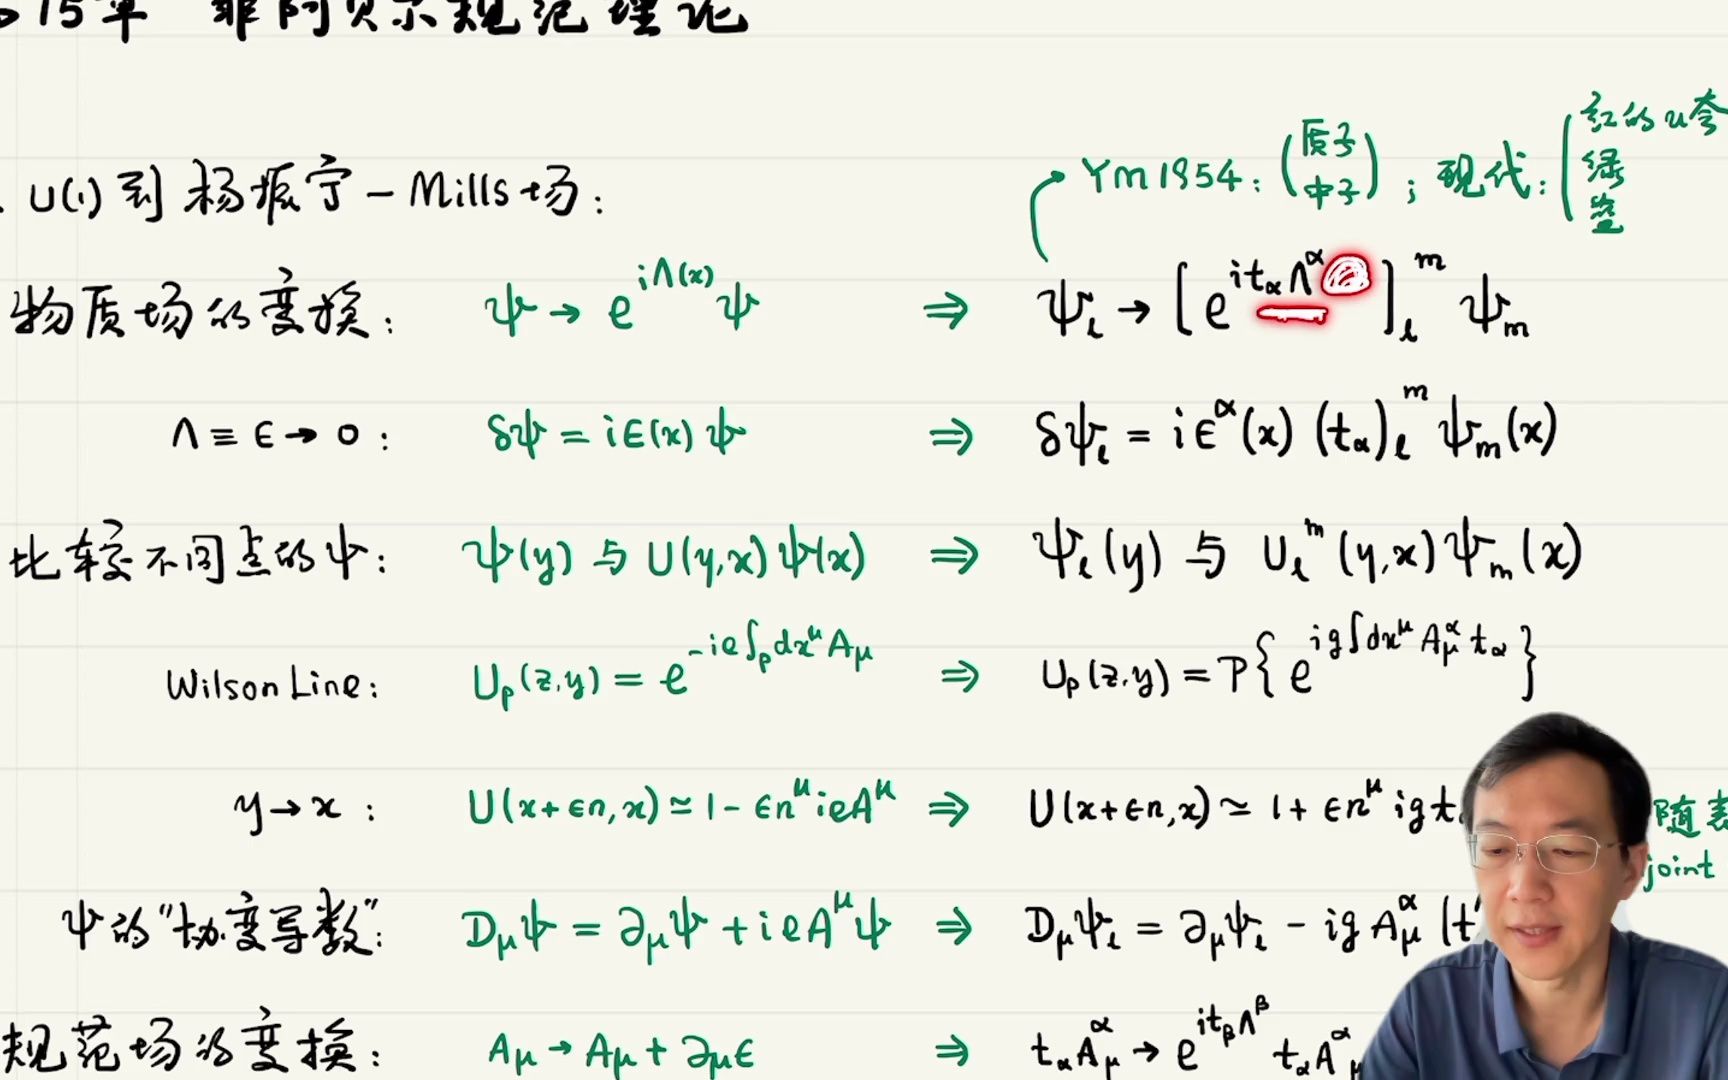 15章 非阿贝尔规范理论
红的u夸
YM 1954: (质子 中子) ; 现代: 绿
蓝
. U(1) 到 杨振宁 - Mills 场:
物质场的变换: ψ → e^{iΛ(x)} ψ ⇒ ψ_l → [e^{it_αΛ^α}]_l^m ψ_m
Λ ≡ ϵ → 0 : δψ = iϵ(x) ψ ⇒ δψ_l = iϵ^α(x) (t_α)_l^m ψ_m(x)
比较不同点的ψ: ψ(y) 与 U(y,x) ψ(x) ⇒ ψ_l(y) 与 U_l^m(y,x) ψ_m(x)
Wilson Line: U_p(z,y) = e^{-ie∫_p dx^μ A_μ} ⇒ U_p(z,y) = P{ e^{ig∫dx^μ A_μ^α t_α} }
y → x : U(x+ϵn, x) ≃ 1 - ϵn^μ ieA^μ ⇒ U(x+ϵn, x) ≃ 1 + ϵn^μ igt
随表
joint
ψ的"协变导数": D_μψ = ∂_μψ + ieA^μψ ⇒ D_μψ_l = ∂_μψ_l - igA_μ^α (t
规范场的变换: A_μ → A_μ + ∂_μϵ ⇒ t_αA_μ^α → e^{it_βΛ^β} t_αA^α_μ